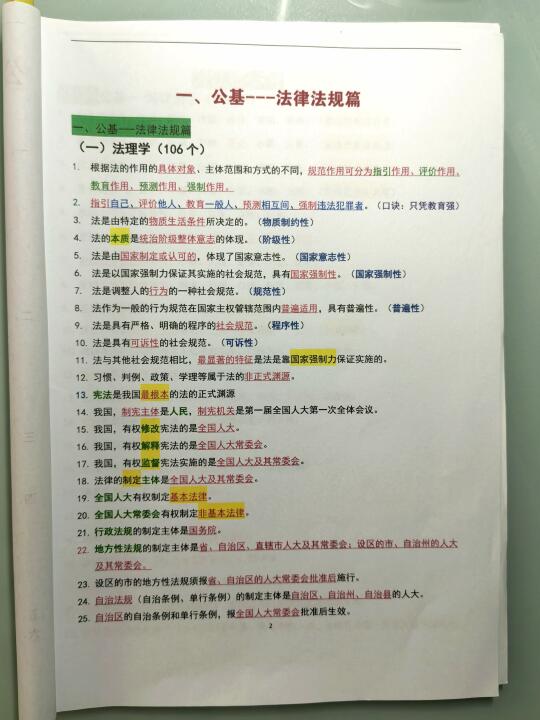 一、公基---法律法规篇
一、公基---法律法规篇
（一）法理学（106个）
1. 根据法的作用的具体对象、主体范围和方式的不同，规范作用可分为指引作用、评价作用、
教育作用、预测作用、强制作用。
2. 指引自己、评价他人、教育一般人、预测相互间、强制违法犯罪者。（口诀：只凭教育强）
3. 法是由特定的物质生活条件所决定的。（物质制约性）
4. 法的本质是统治阶级整体意志的体现。（阶级性）
5. 法是由国家制定或认可的，体现了国家意志性。（国家意志性）
6. 法是以国家强制力保证其实施的社会规范，具有国家强制性。（国家强制性）
7. 法是调整人的行为的一种社会规范。（规范性）
8. 法作为一般的行为规范在国家主权管辖范围内普遍适用，具有普遍性。（普遍性）
9. 法是具有严格、明确的程序的社会规范。（程序性）
10. 法是具有可诉性的社会规范。（可诉性）
11. 法与其他社会规范相比，最显著的特征是法是靠国家强制力保证实施的。
12. 习惯、判例、政策、学理等属于法的非正式渊源。
13. 宪法是我国最根本的法的正式渊源
14. 我国，制宪主体是人民，制宪机关是第一届全国人大第一次全体会议。
15. 我国，有权修改宪法的是全国人大。
16. 我国，有权解释宪法的是全国人大常委会。
17. 我国，有权监督宪法实施的是全国人大及其常委会。
18. 法律的制定主体是全国人大及其常委会。
19. 全国人大有权制定基本法律。
20. 全国人大常委会有权制定非基本法律。
21. 行政法规的制定主体是国务院。
22. 地方性法规的制定主体是省、自治区、直辖市人大及其常委会；设区的市、自治州的人大
及其常委会。
23. 设区的市的地方性法规须报省、自治区的人大常委会批准后施行。
24. 自治法规（自治条例、单行条例）的制定主体是自治区、自治州、自治县的人大。
25. 自治区的自治条例和单行条例，报全国人大常委会批准后生效。
2